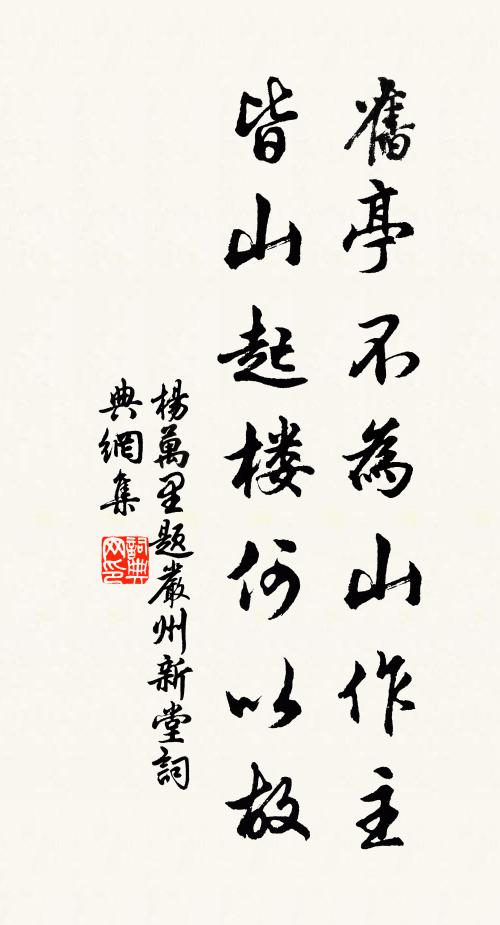 舊亭不為山作主
皆山起楼何以故
楊萬里題嚴州新堂詞
典網集
詞典網印